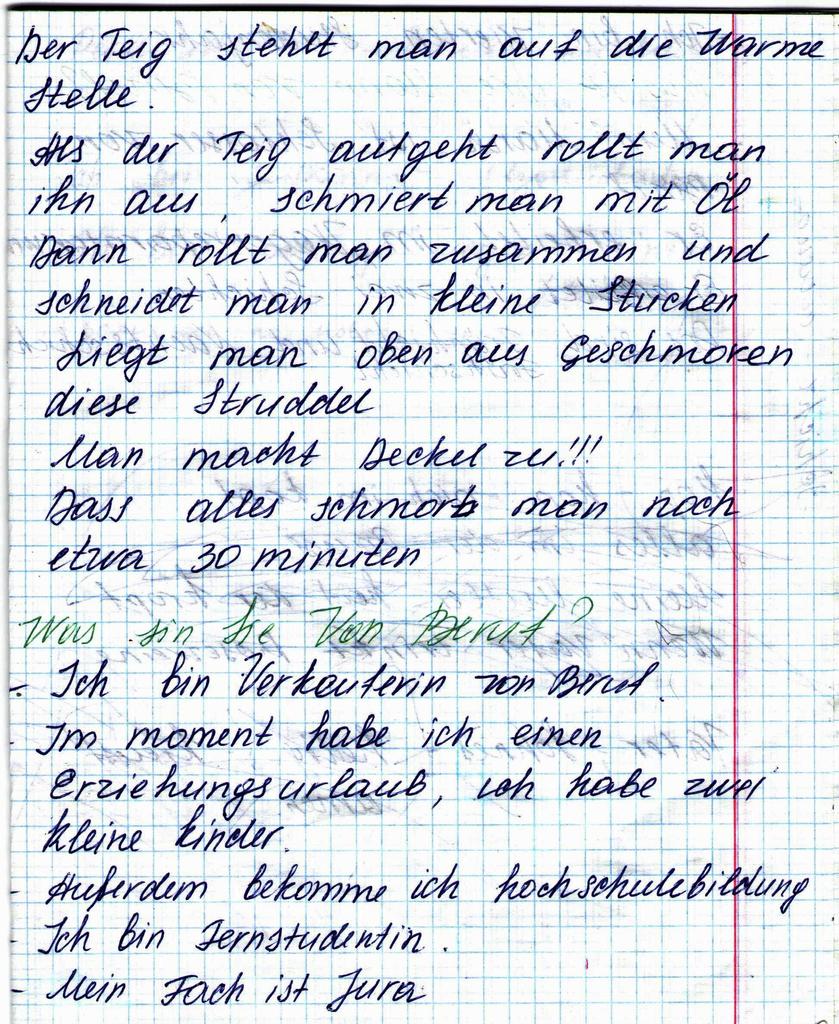 Der Teig stehlt man auf die Warme
Stelle.
Als der Teig aufgeht rollt man
ihn aus, schmiert man mit Öl
Dann rollt man zusammen und
schneidet man in kleine Stucken
Liegt man oben aus Geschmoren
diese Struddel
Man macht Deckel zu!!!
Dass alles schmort man noch
etwa 30 minuten
Was sin Sie Von Beruf?
- Ich bin Verkauterin von Beruf.
- Im moment habe ich einen
Erziehungsurlaub, ich habe zwei
kleine kinder.
- Außerdem bekomme ich hochschulebildung
- Ich bin Fernstudentin.
- Mein Fach ist Jura